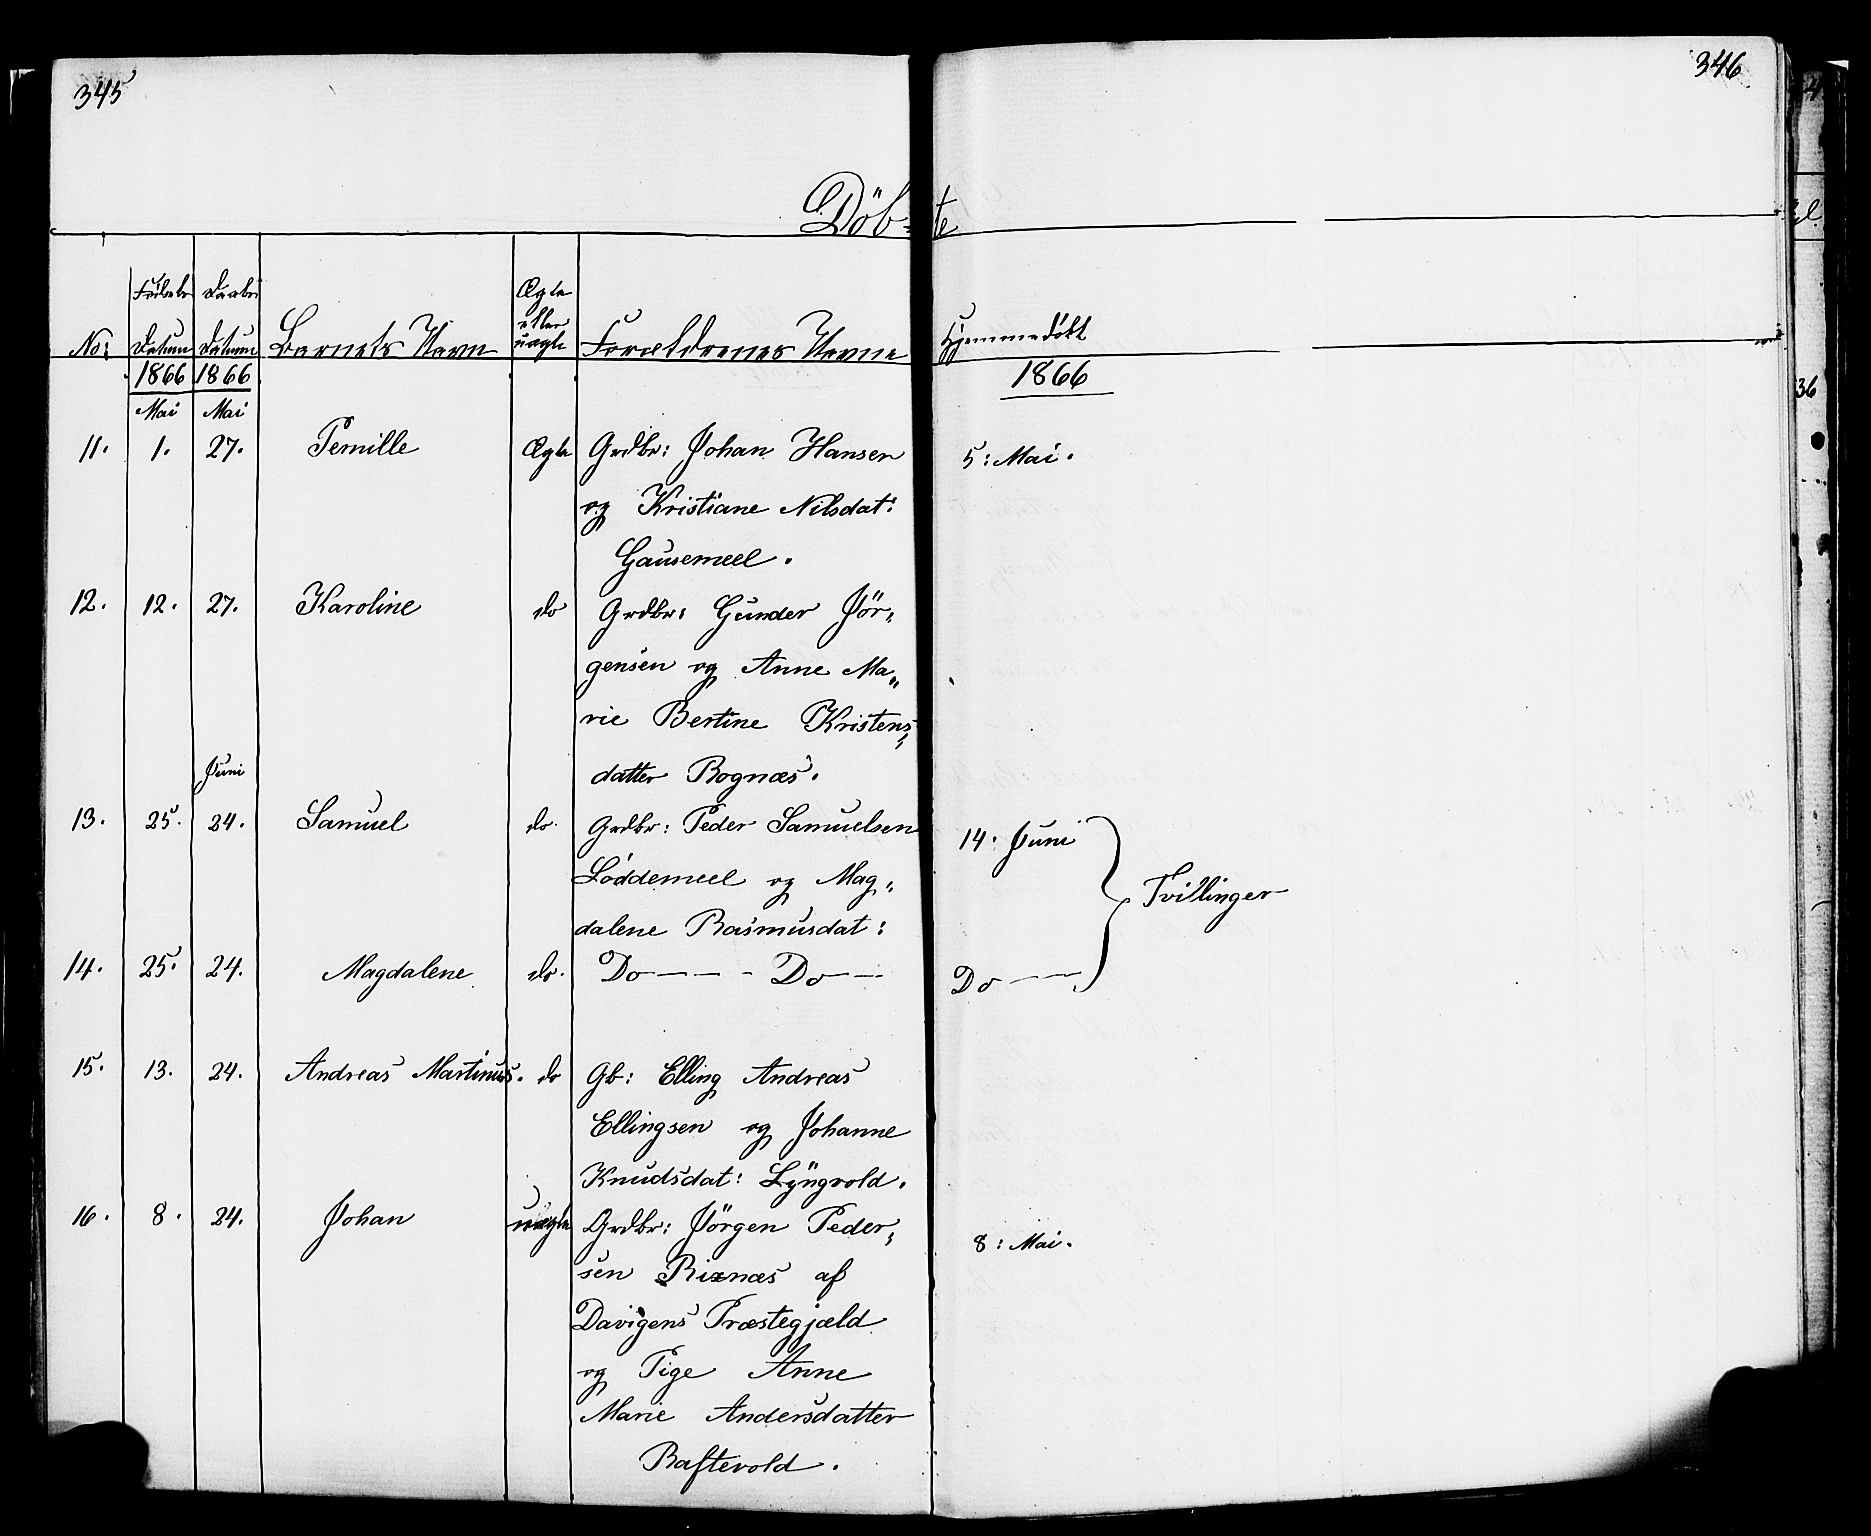 345
346
Döb- te
No: Födsels Datum Daabs Datum Barnets Navn Ægte eller uægte Forældrenes Navne Hjemmedöbt
1866 1866 1866
Mai Mai
11. 1. 27. Pernille Ægte Grdbr: Johan Hansen 5: Mai.
og Kristiane Nilsdat:
Gausemeel.
12. 12. 27. Karoline do Grdbr: Gunder Jör„
gensen og Anne Ma„
rie Bertine Kristens„
Juni datter Bognæs.
13. 25. 24. Samuel do. Grdbr: Peder Samuelsen 14. Juni
Löddemeel og Mag„ Tvillinger
dalene Rasmusdat:
14. 25. 24. Magdalene do. Do — — - Do — — Do — —
15. 13. 24. Andreas Martinus. do Gb: Elling Andreas
Ellingsen og Johanne
Knudsdat: Lyngvold.
16. 8. 24. Johan uægte Grdbr: Jörgen Peder„ 8: Mai.
sen Rixnæs af
Davigens Præstegjæld
og Pige Anne
Marie Andersdatter
Raftevold.
36